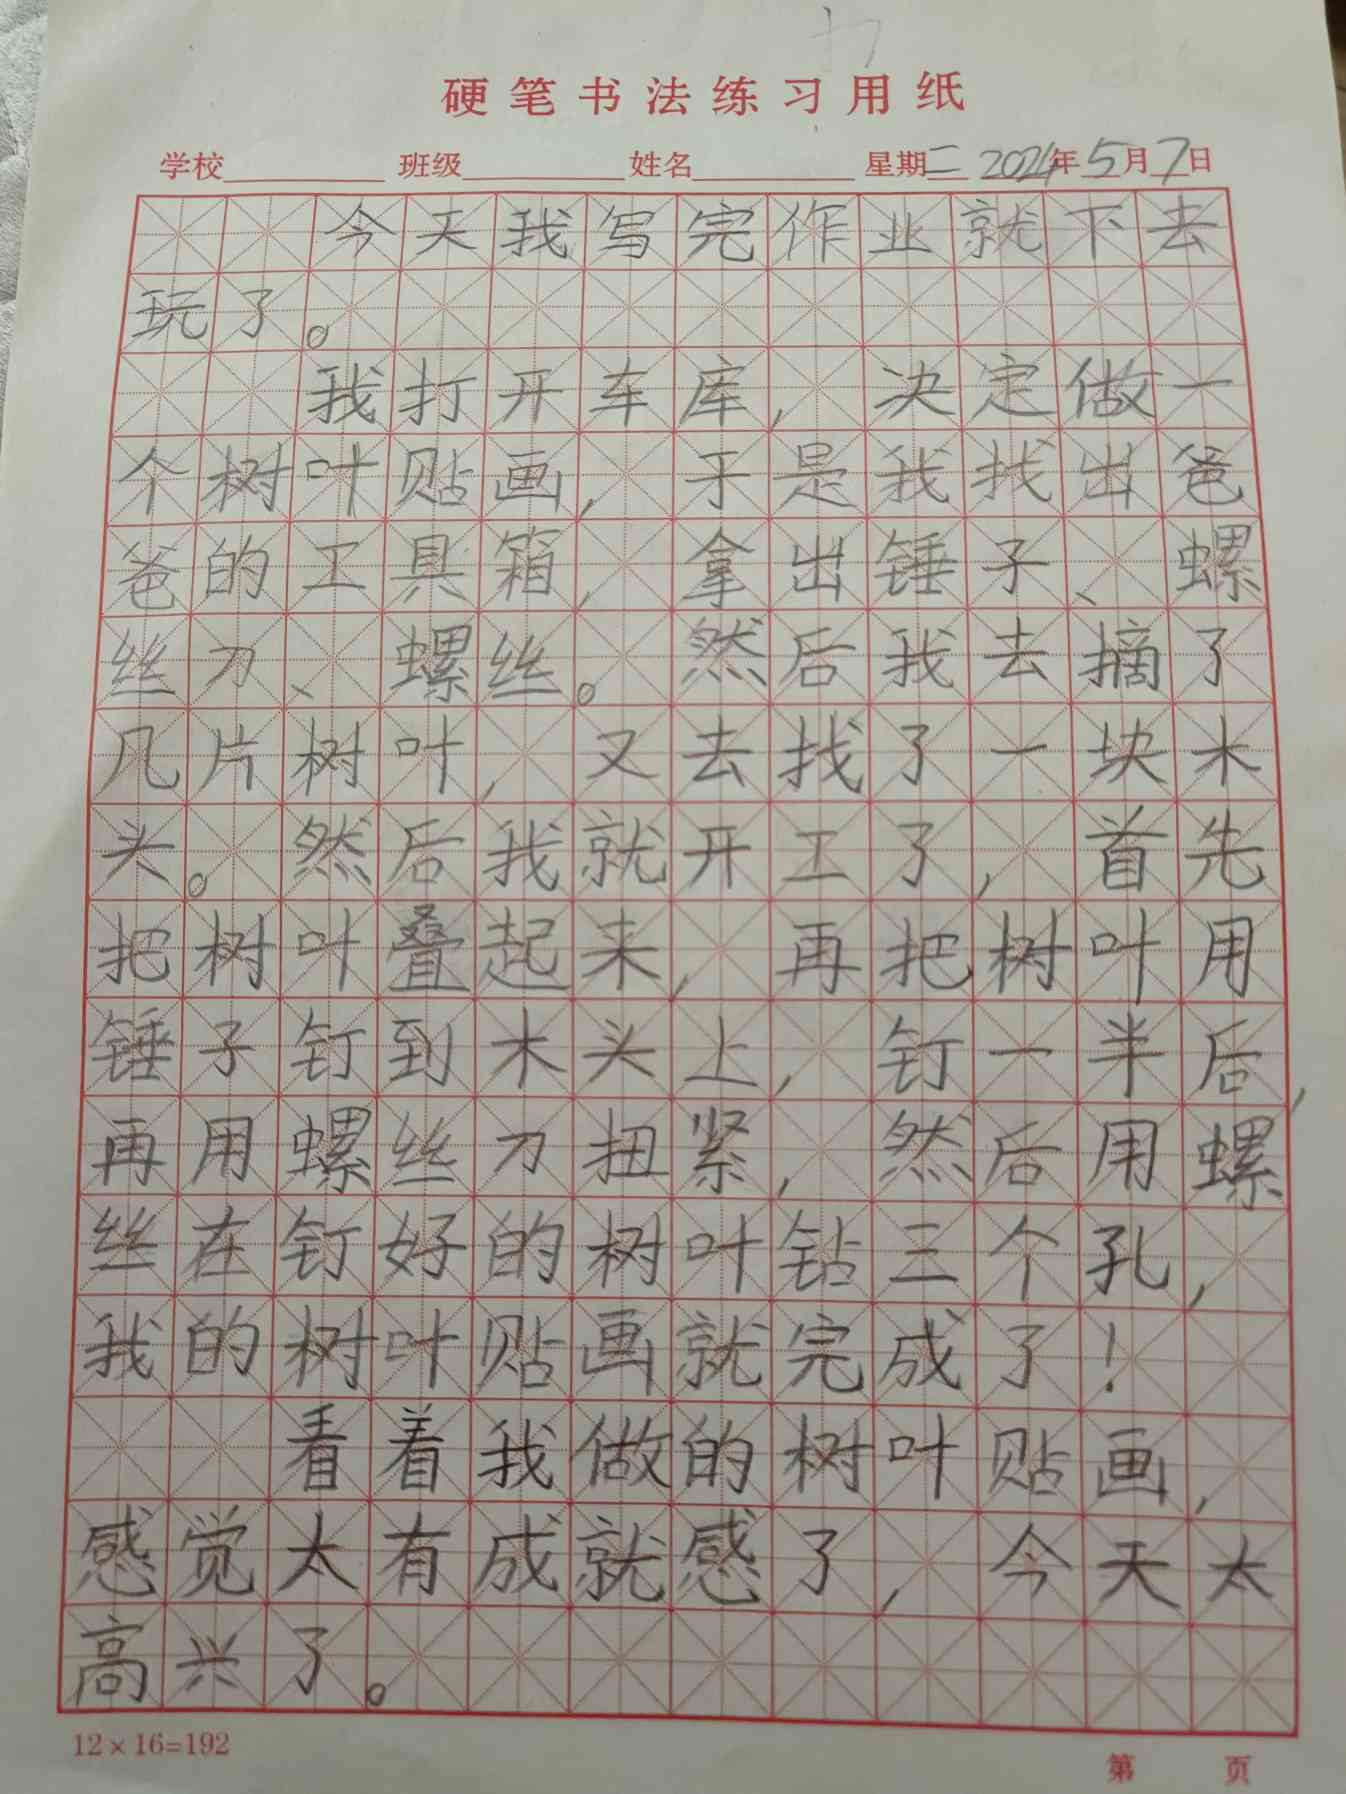 硬笔书法练习用纸
学校 班级 姓名 星期二 2024年5月7日
今天我写完作业就下去
玩了。
我打开车库，决定做一
个树叶贴画，于是我找出爸
爸的工具箱，拿出锤子、螺
丝刀、螺丝。然后我去摘了
几片树叶，又去找了一块木
头。然后我就开工了，首先
把树叶叠起来，再把树叶用
锤子钉到木头上，钉一半后，
再用螺丝刀扭紧，然后用螺
丝在钉好的树叶钻三个孔，
我的树叶贴画就完成了！
看着我做的树叶贴画，
感觉太有成就感了，今天太
高兴了。
12×16=192
第 页